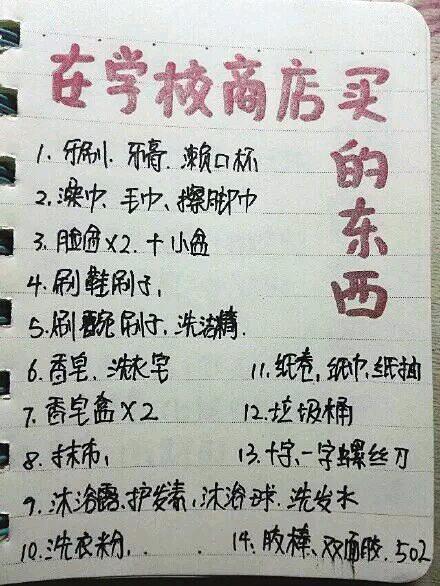 在学校商店买
的东西
1. 牙刷、牙膏、濑口杯
2. 澡巾、毛巾、擦脚巾
3. 脸盆×2. 十小盆
4. 刷鞋刷子,
5. 刷碗刷子, 洗洁精.
6. 香皂, 洗衣皂
7. 香皂盒×2
8. 抹布,
9. 沐浴露.护发素, 沐浴球. 洗发水
10. 洗衣粉,
11. 纸卷, 纸巾, 纸抽
12. 垃圾桶
13. 十字、一字螺丝刀
14. 胶棒、双面胶. 502